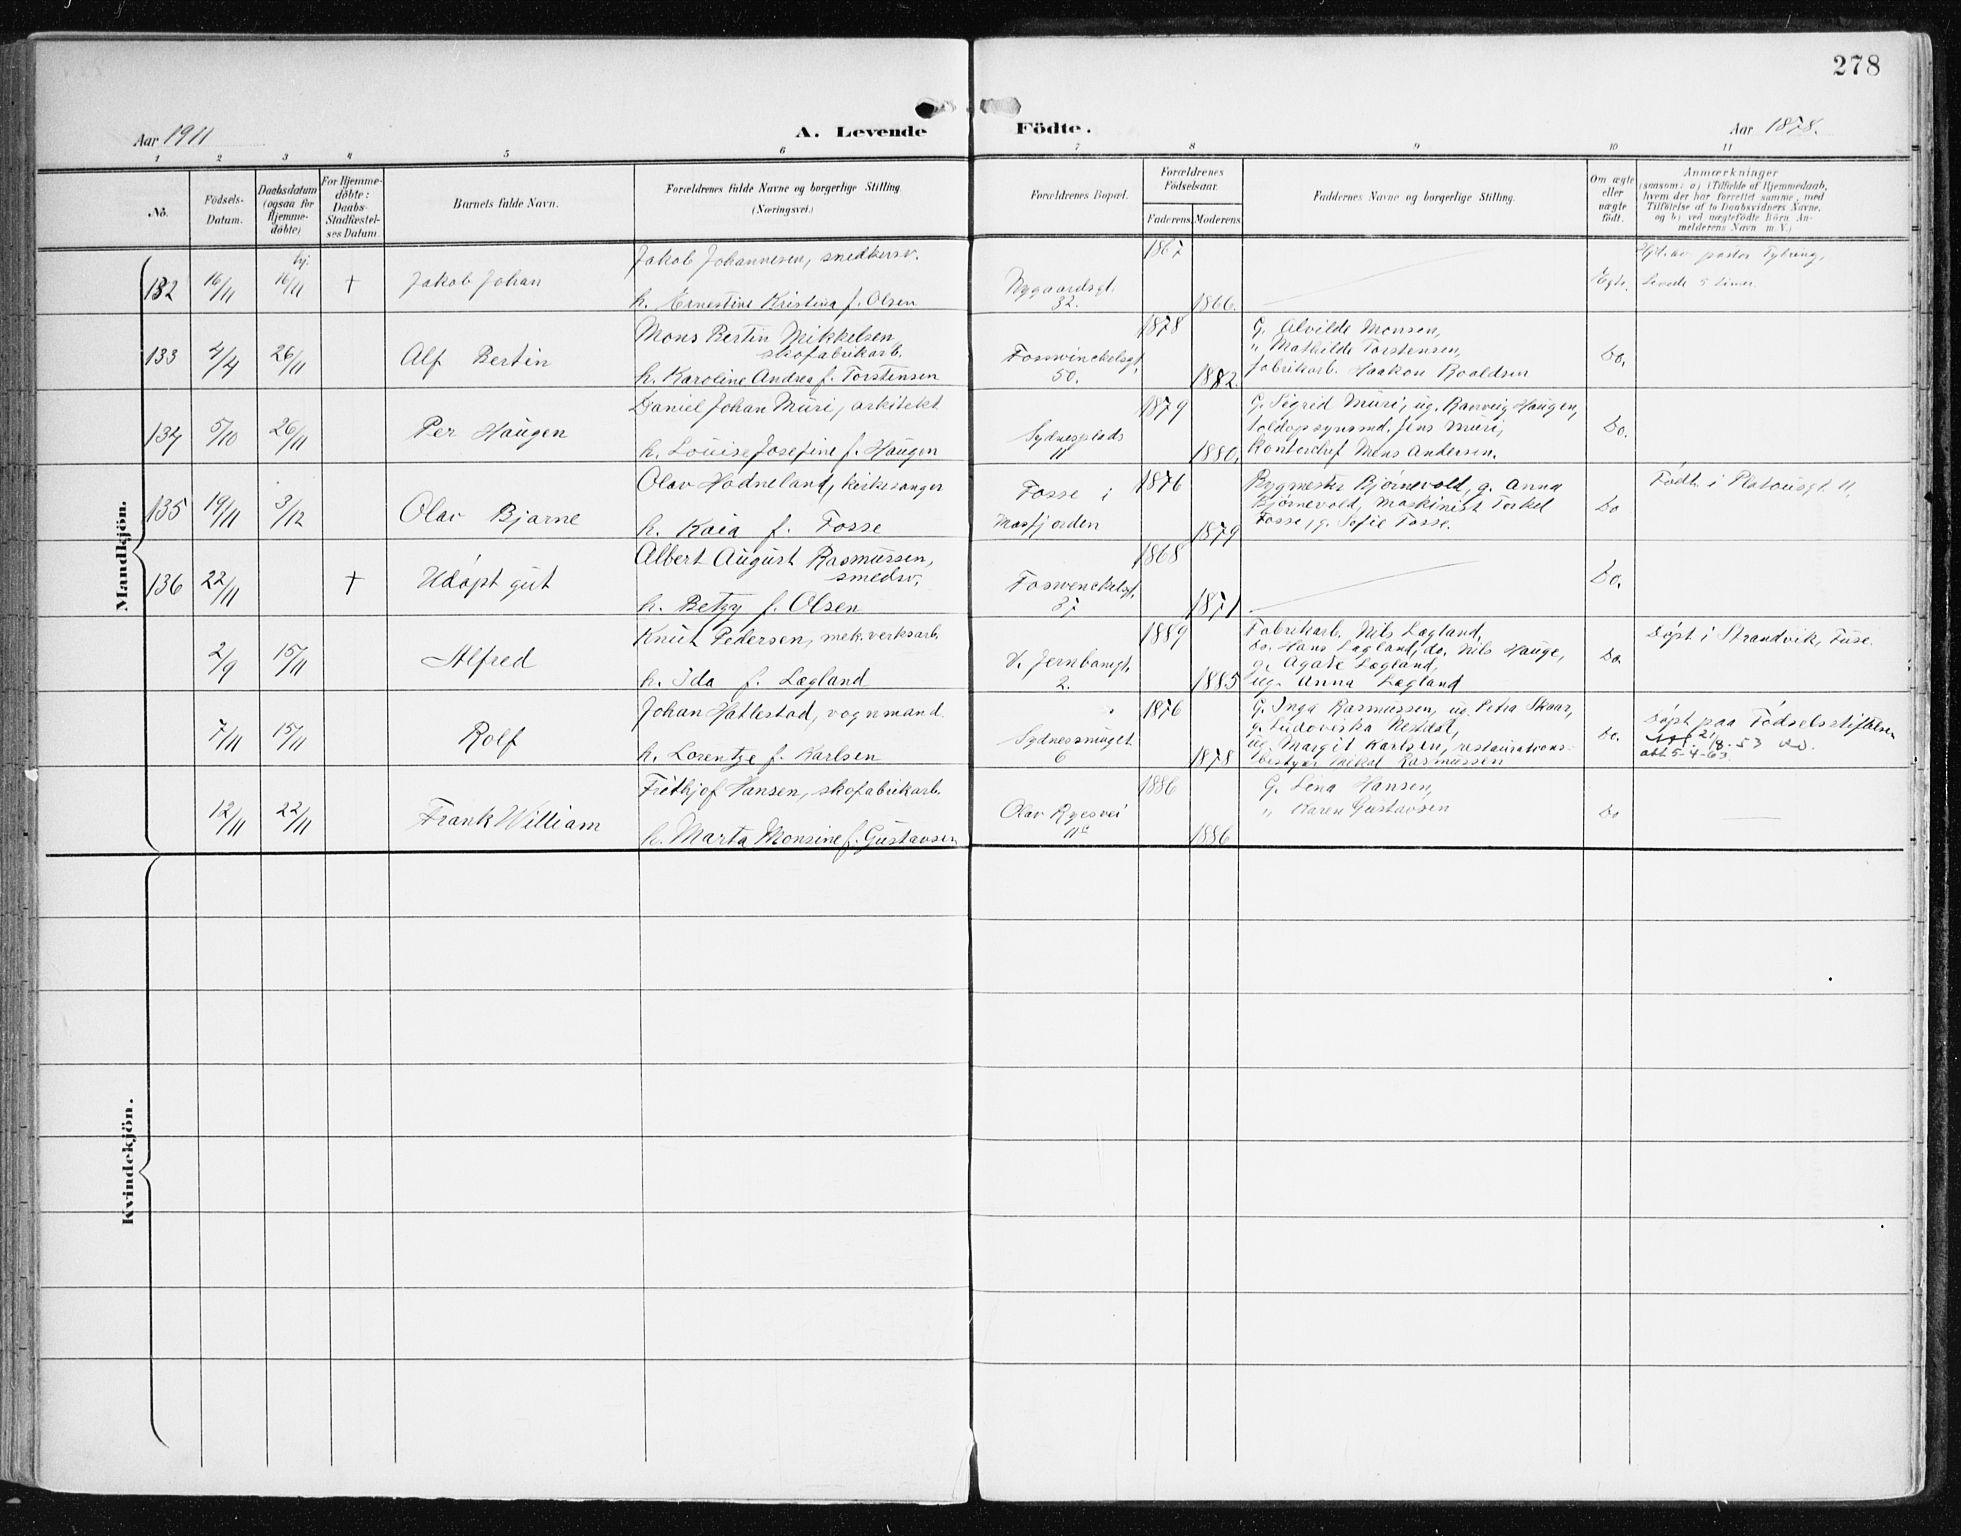 278
Aar 1911
A. Levende Födte.
Aar 1878.
1 2 3 4 5 6 7 8 9 10 11
No.
Födsels-Datum.
Daabsdatum (ogsaa for Hjemme-döbte)
For Hjemme-döbte: Daabs-Stadfæstel-ses Datum
Barnets fulde Navn.
Forældrenes fulde Navne og borgerlige Stilling
(Næringsvei.)
Forældrenes Bopæl.
Forældrenes Födselsaar.
Faderens Moderens
Faddernes Navne og borgerlige Stilling.
Om ægte eller uægte födt.
Anmærkninger
(saasom: a) i Tilfælde af Hjemmedaab,
hvem der har forrettet samme, med
Tilföielse af to Daabsvidners Navne,
og b) ved uægtefödte Börn An-
melderens Navn m. V.)
Mandkjön.
132 16/11 hj. 16/11 † Jakob Johan
Jakob Johannesen, snedkersv.
h. Ernestine Kristina f. Olsen
Nygaardsgt. 32.
1867 1866.
Ægte.
Hjd. av pastor Tybring,
Levede 5 timer.
133 4/4 26/11 Alf Bertin
Mons Bertin Mikkelsen
skofabrikarb.
h. Karoline Andrea f. Torstensen
Foswinckelsgt. 50.
1878 1882.
G. Alvilde Monsen,
" Mathilde Torstensen,
fabrikarb. Haakon Roaldsen
Do.
134 5/10 26/11 Per Haugen
Daniel Johan Muri, arkitekt
h. Louise Josefine f. Haugen
Sydnesplads 11
1879 1880.
G. Sigrid Muri, ug. Ranveig Haugen,
toldopsynsmd. Jens Muri,
kontorchef Mons Andersen.
Do.
135 19/11 3/12 Olav Bjarne
Olav Hodneland, kirkesanger
h. Kaia f. Fosse
Fosse i
Masfjorden
1876 1879
Bygmester Bjørnevold, g. Anna
Bjørnevold, Maskinist Torkel
Fosse, g. Sofie Fosse.
Do
Født i Platousgt. 11,
136 22/11 † Udøpt gut
Albert August Rasmussen,
smedsv,
h. Betzy f. Olsen
Foswenckelsgt. 37
1868 1871
Do.
2/9 15/11 Alfred
Knut Pedersen, mek. verksarb.
h. Ida f. Lægland
V. Jernbanegt. 2.
1889 1885
Fabrikarb. Nils Lægland,
do. Hans Lægland, do. Nils Hauge,
g. Agate Lægland,
ug. Anna Lægland
Do.
Døpt i Strandvik, Fuse.
7/11 15/11 Rolf
Johan Hatlestad, vognmand
h. Lorentze f. Karlsen
Sydnessmuget 6
1876 1878
G. Inga Rasmussen, ug. Petra Skaar,
g. Ludoviska Nestdal,
ug. Margit Karlsen, restaurations-
bestyrer Mikal Rasmussen
Do.
Døpt paa Fødselsstiftelsen
att 5-4-63.
12/11 22/11 Frank William
Frithjof Hansen, skofabrikarb.
h. Marta Monsine f. Gustavsen
Olav Ryesvei
1886 1886
G. Lena Hansen,
" Karen Gustavsen
Do
Kvindekjön.